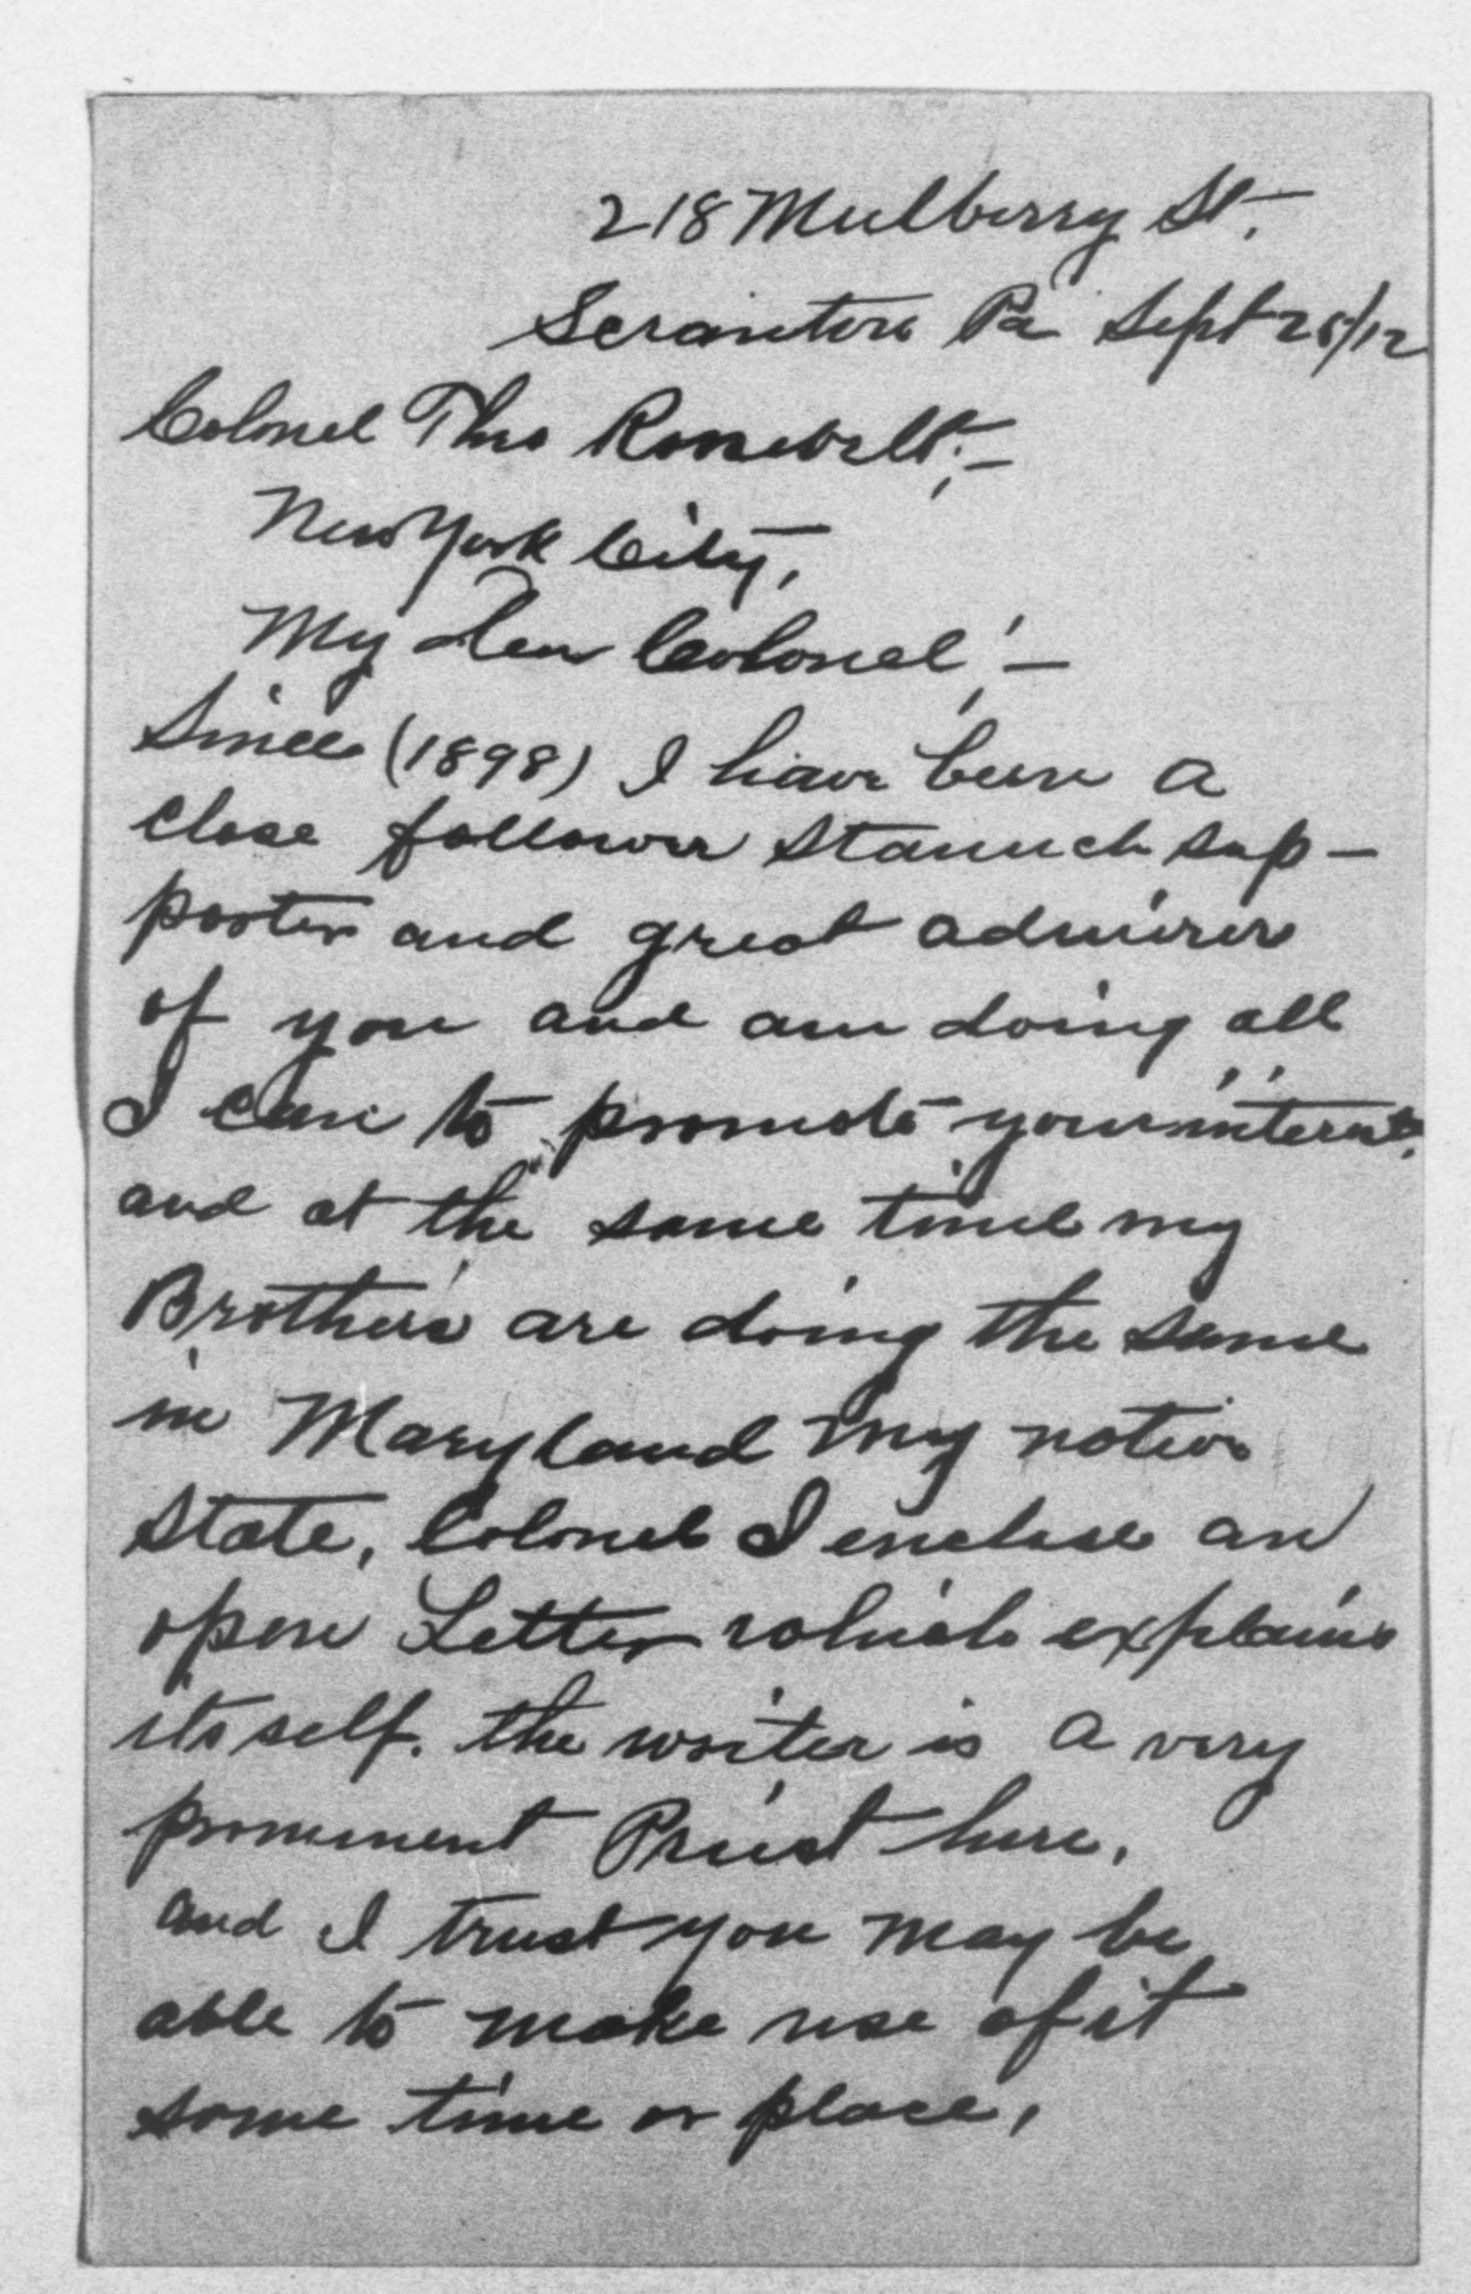 218 Mulberry St.
Scranton Pa Sept 25/12
Colonel Theo Roosevelt;—
New York City,
My dear Colonel;—
Since (1898) I have been a
close follower staunch sup-
porter and great admirer
of you and am doing all
I can to promote your interests.
and at the same time my
Brothers are doing the same
in Maryland my native
State, Colonel I enclose an
open Letter which explains
its self. the writer is a very
prominent Priest here.
and I trust you may be
able to make use of it
some time or place,